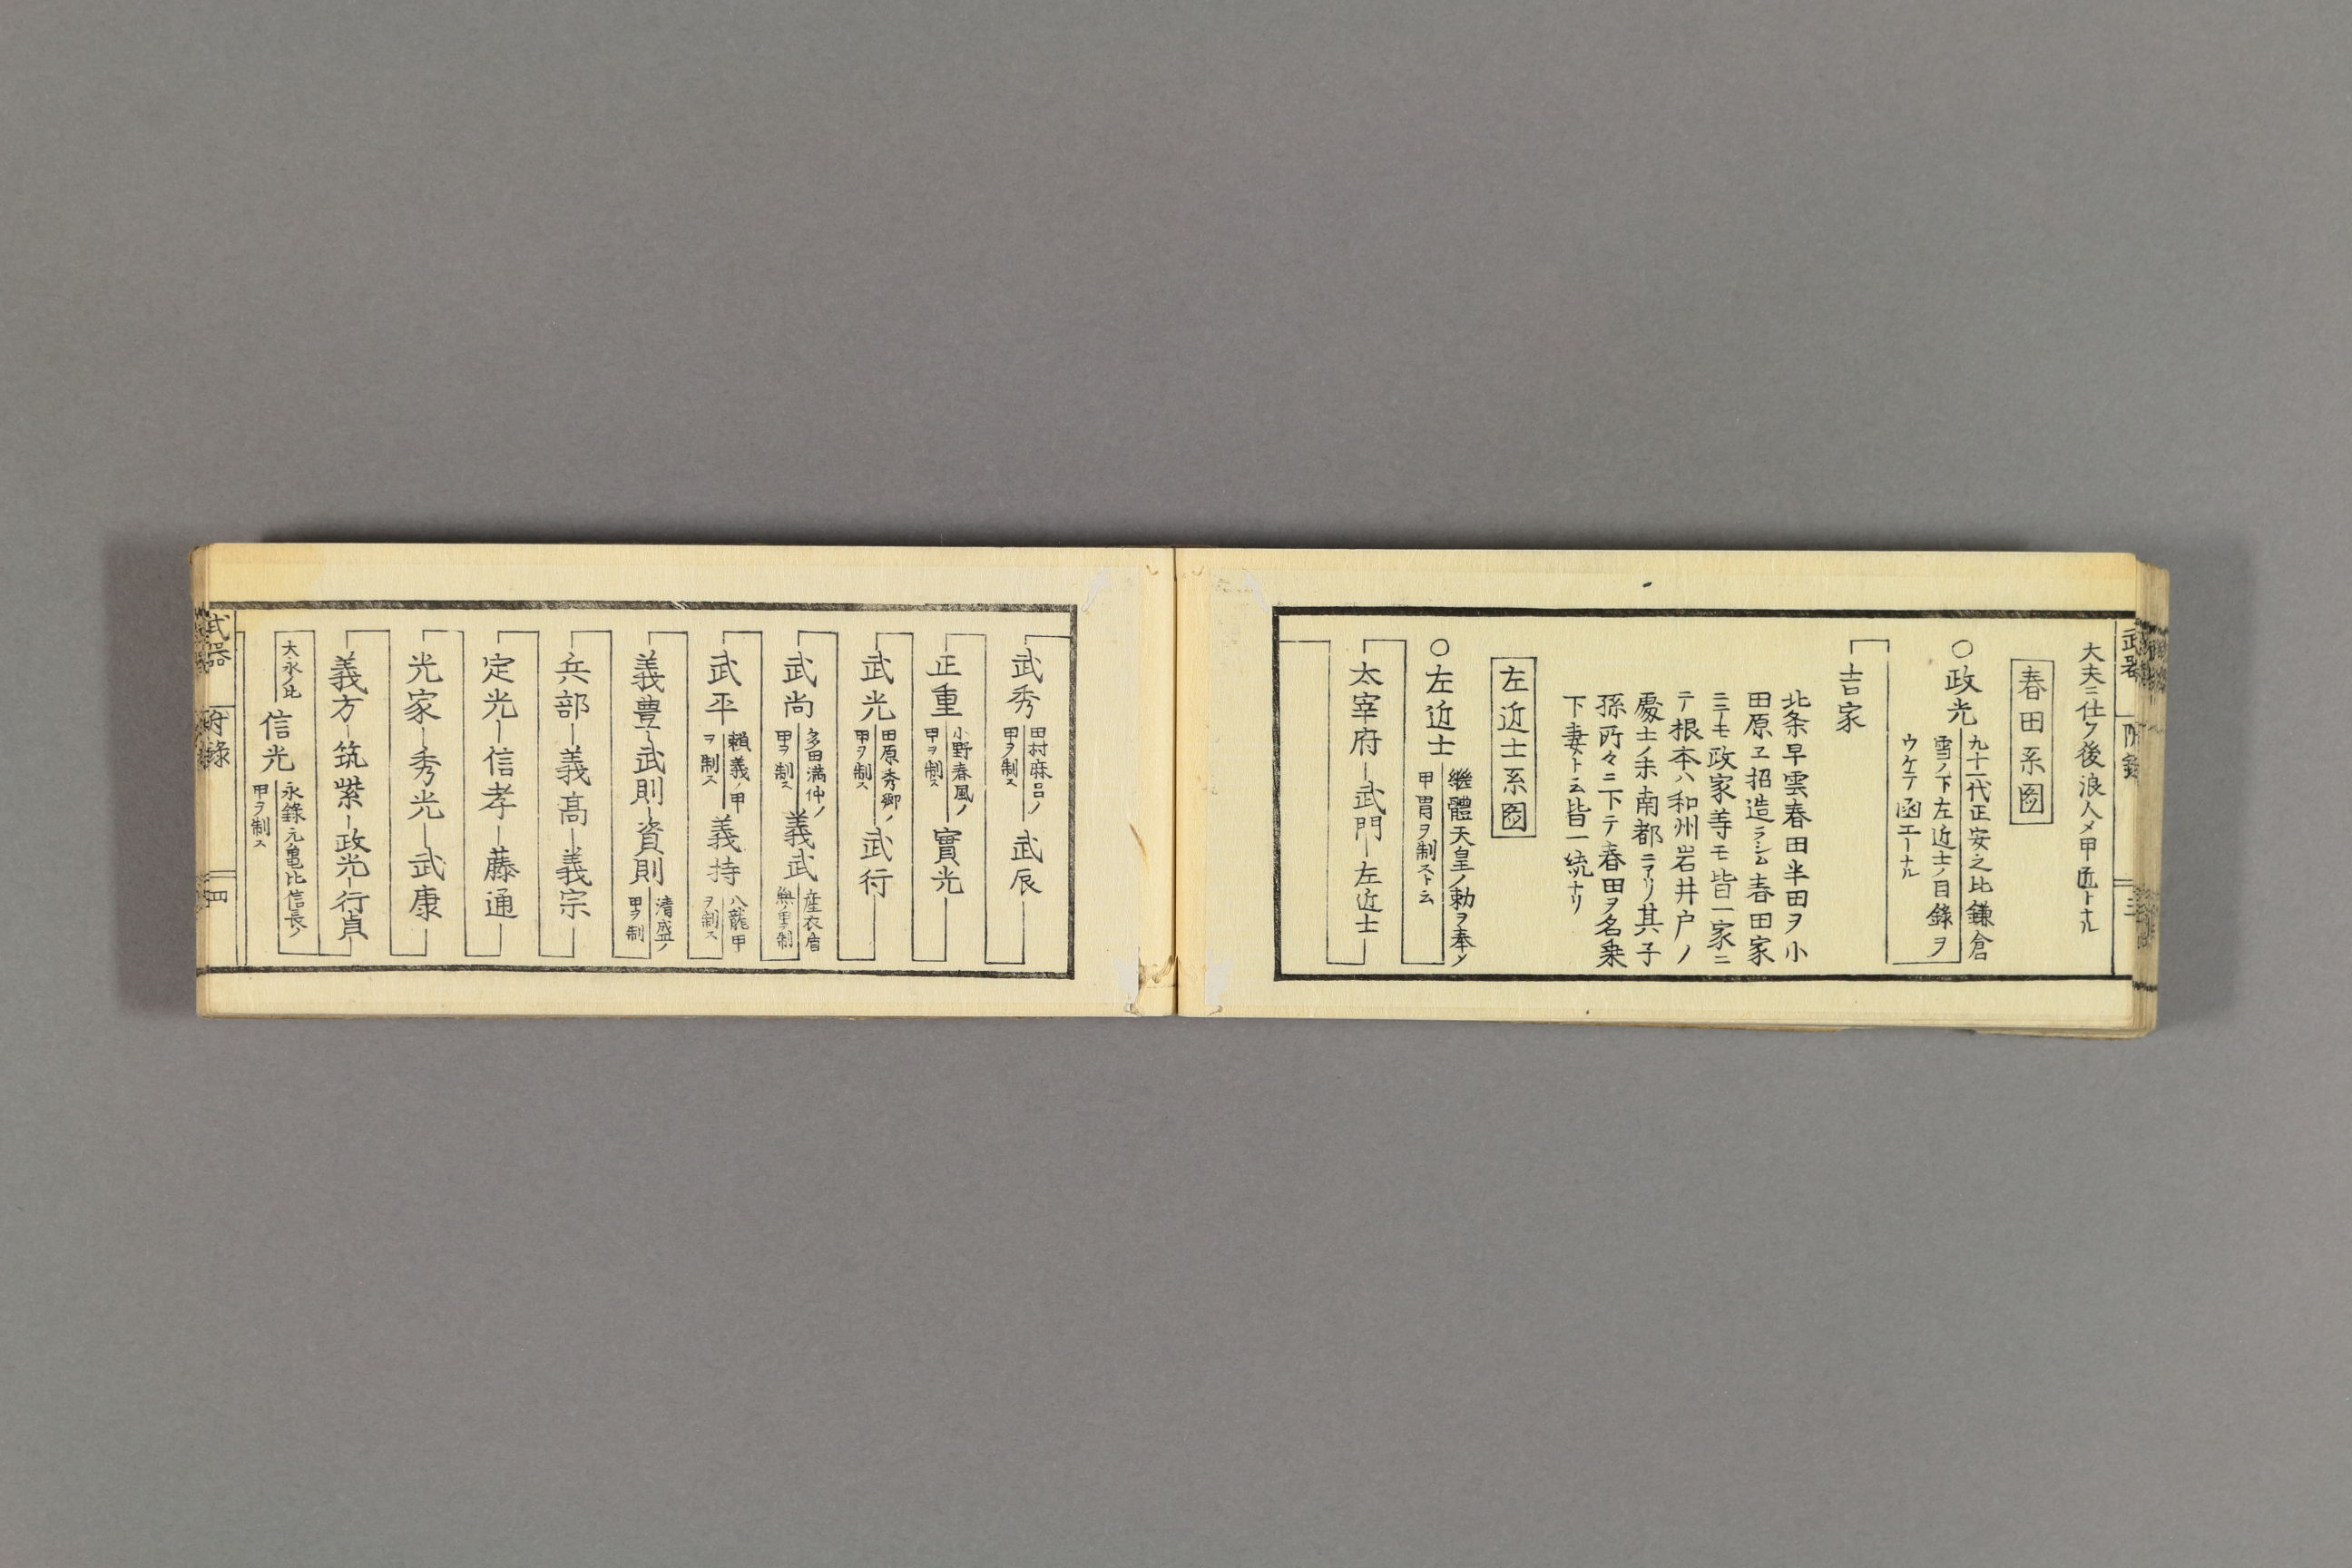 大夫ニ仕ク後浪人メ甲匠トナル
春田系圖
○政光
九十一代正安之比鎌倉
雪ノ下左近士ノ目錄ヲ
ウケテ函工トナル
吉家
北条早雲春田半田ヲ小
田原ヱ招造ラシム春田家
ニモ政家等モ皆一家ニ
テ根本ハ和州岩井戸ノ
慶士ノ末南都ニアリ其子
孫所々ニ下テ春田ヲ名乗
下妻ト云皆一統ナリ
左近士系圖
○左近士
継體天皇ノ勅ヲ奉メ
甲冑ヲ制ストム
太宰府 武門 左近士
武器 附録 三
武秀
田村麻呂ノ
甲ヲ制ス
武辰
正重
小野春風ノ
甲ヲ制ス
實光
武光
田原秀郷ノ
甲ヲ制ス
武行
武尚
多田満仲ノ
甲ヲ制ス
義武
産衣盾
無
制
武平
頼義ノ甲
ヲ制ス
義持
八龍甲
ヲ制ス
義豊 武則 資則
清盛ノ
甲ヲ制
兵部 義高 義宗
定光 信孝 藤通
光家 秀光 武康
義方 筑紫 政光 行貞
大永ノ比
信光
永錄元亀比信長ノ
甲ヲ制ス
武器 附錄 四